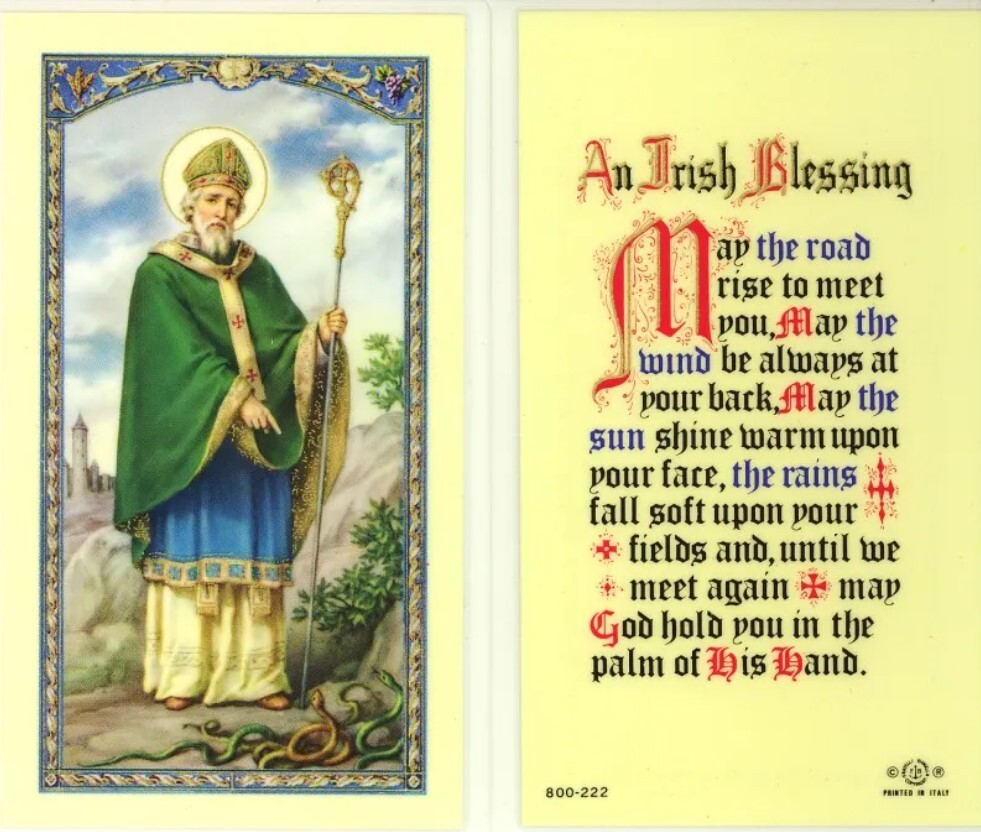 An Irish Blessing
May the road
rise to meet
you, May the
wind be always at
your back, May the
sun shine warm upon
your face, the rains
fall soft upon your
fields and, until we
meet again may
God hold you in the
palm of His Hand.
800-222
© ®
PRINTED IN ITALY